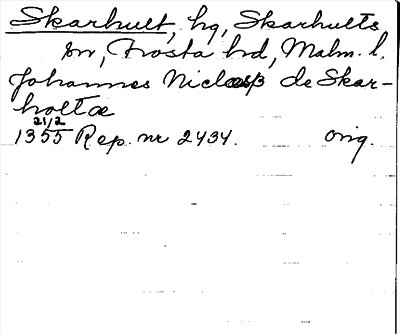 Skarhult, hg, Skarhults
sn, Frosta hd, Malm. l.
Johannes Niclæsß de Skar-
holtæ
21/2
1355 Rep. nr 2434. orig.